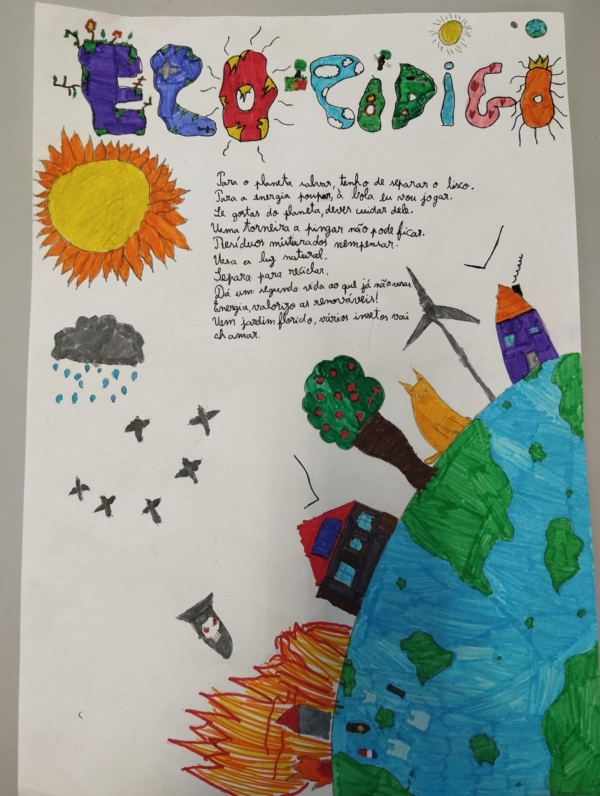 ECO-CÓDIGO
Para o planeta salvar, tenho de separar o lixo.
Para a energia poupar, à bola eu vou jogar.
Se gostas do planeta, deves cuidar dele.
Uma torneira a pingar não pode ficar.
Resíduos misturados nem pensar.
Usa a luz natural.
Separa para reciclar.
Dá um segundo vida ao que já não usas
Energia, valorizo as renováveis!
Um jardim florido, vários insetos vai
chamar.